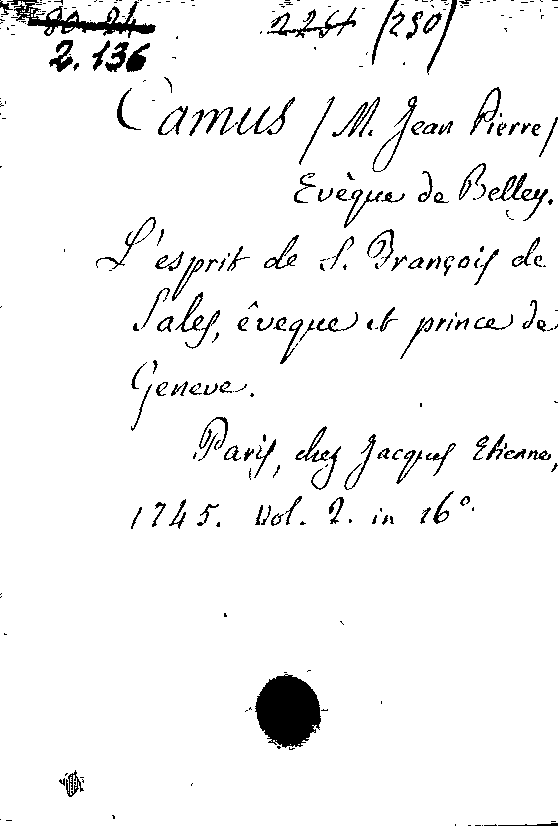 2.136
(230)
Camus / M. Jean Pierre /
Evèque de Belley.
L'esprit de S. François de
Sales, êveque et prince de
Geneve.
Paris, chez Jacques Etienne,
1745. Vol. 2. in 16°.